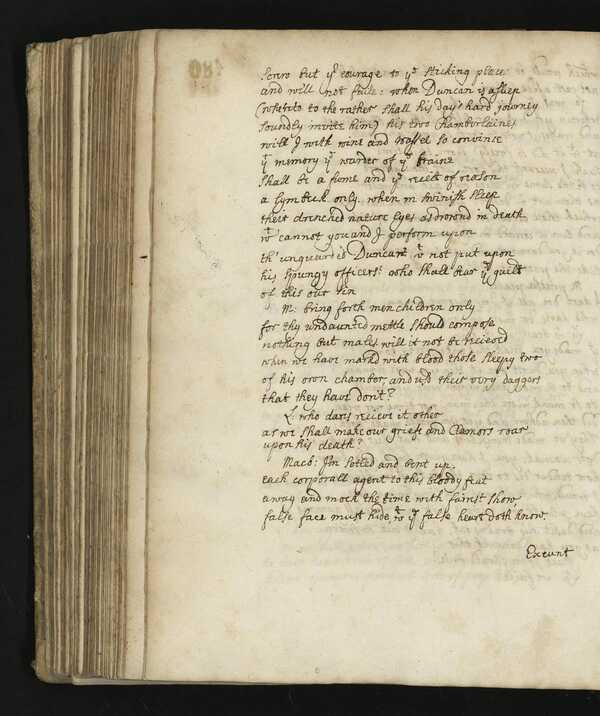 Scrw but yr courage to ye sticking place
and will not faile: when Duncan is asleep
(whereto to the rather shall his day's hard journey
soundly invite him) his two Chamberlaines
will I with wine and wassel so convince
yt memory ye warder of ye braine
shall be a fume and ye receit of reason
a Lymbeck only. when in swinish sleep
their drenched nature lyes as drown'd in death
wt cannot you and I perform upon
th' unguarded Duncan? wt not put upon
his spungy officers? who shall bear ye guilt
of this our sin
M: bring forth men children only
for thy undaunted mettle should compose
nothing but males will it not be receivd
when we have markd with blood those sleepy two
of his own chamber, and usd their very daggers
that they have don't?
L. who dares recieve it other
as we shall make our griefs and Clamors roar
upon his death?
Macb: I'm setled and bent up
each corporall agent to this bloody feat
away and mock the time with fairest show
false face must hide wt ye false heart doth know
Exeunt
180